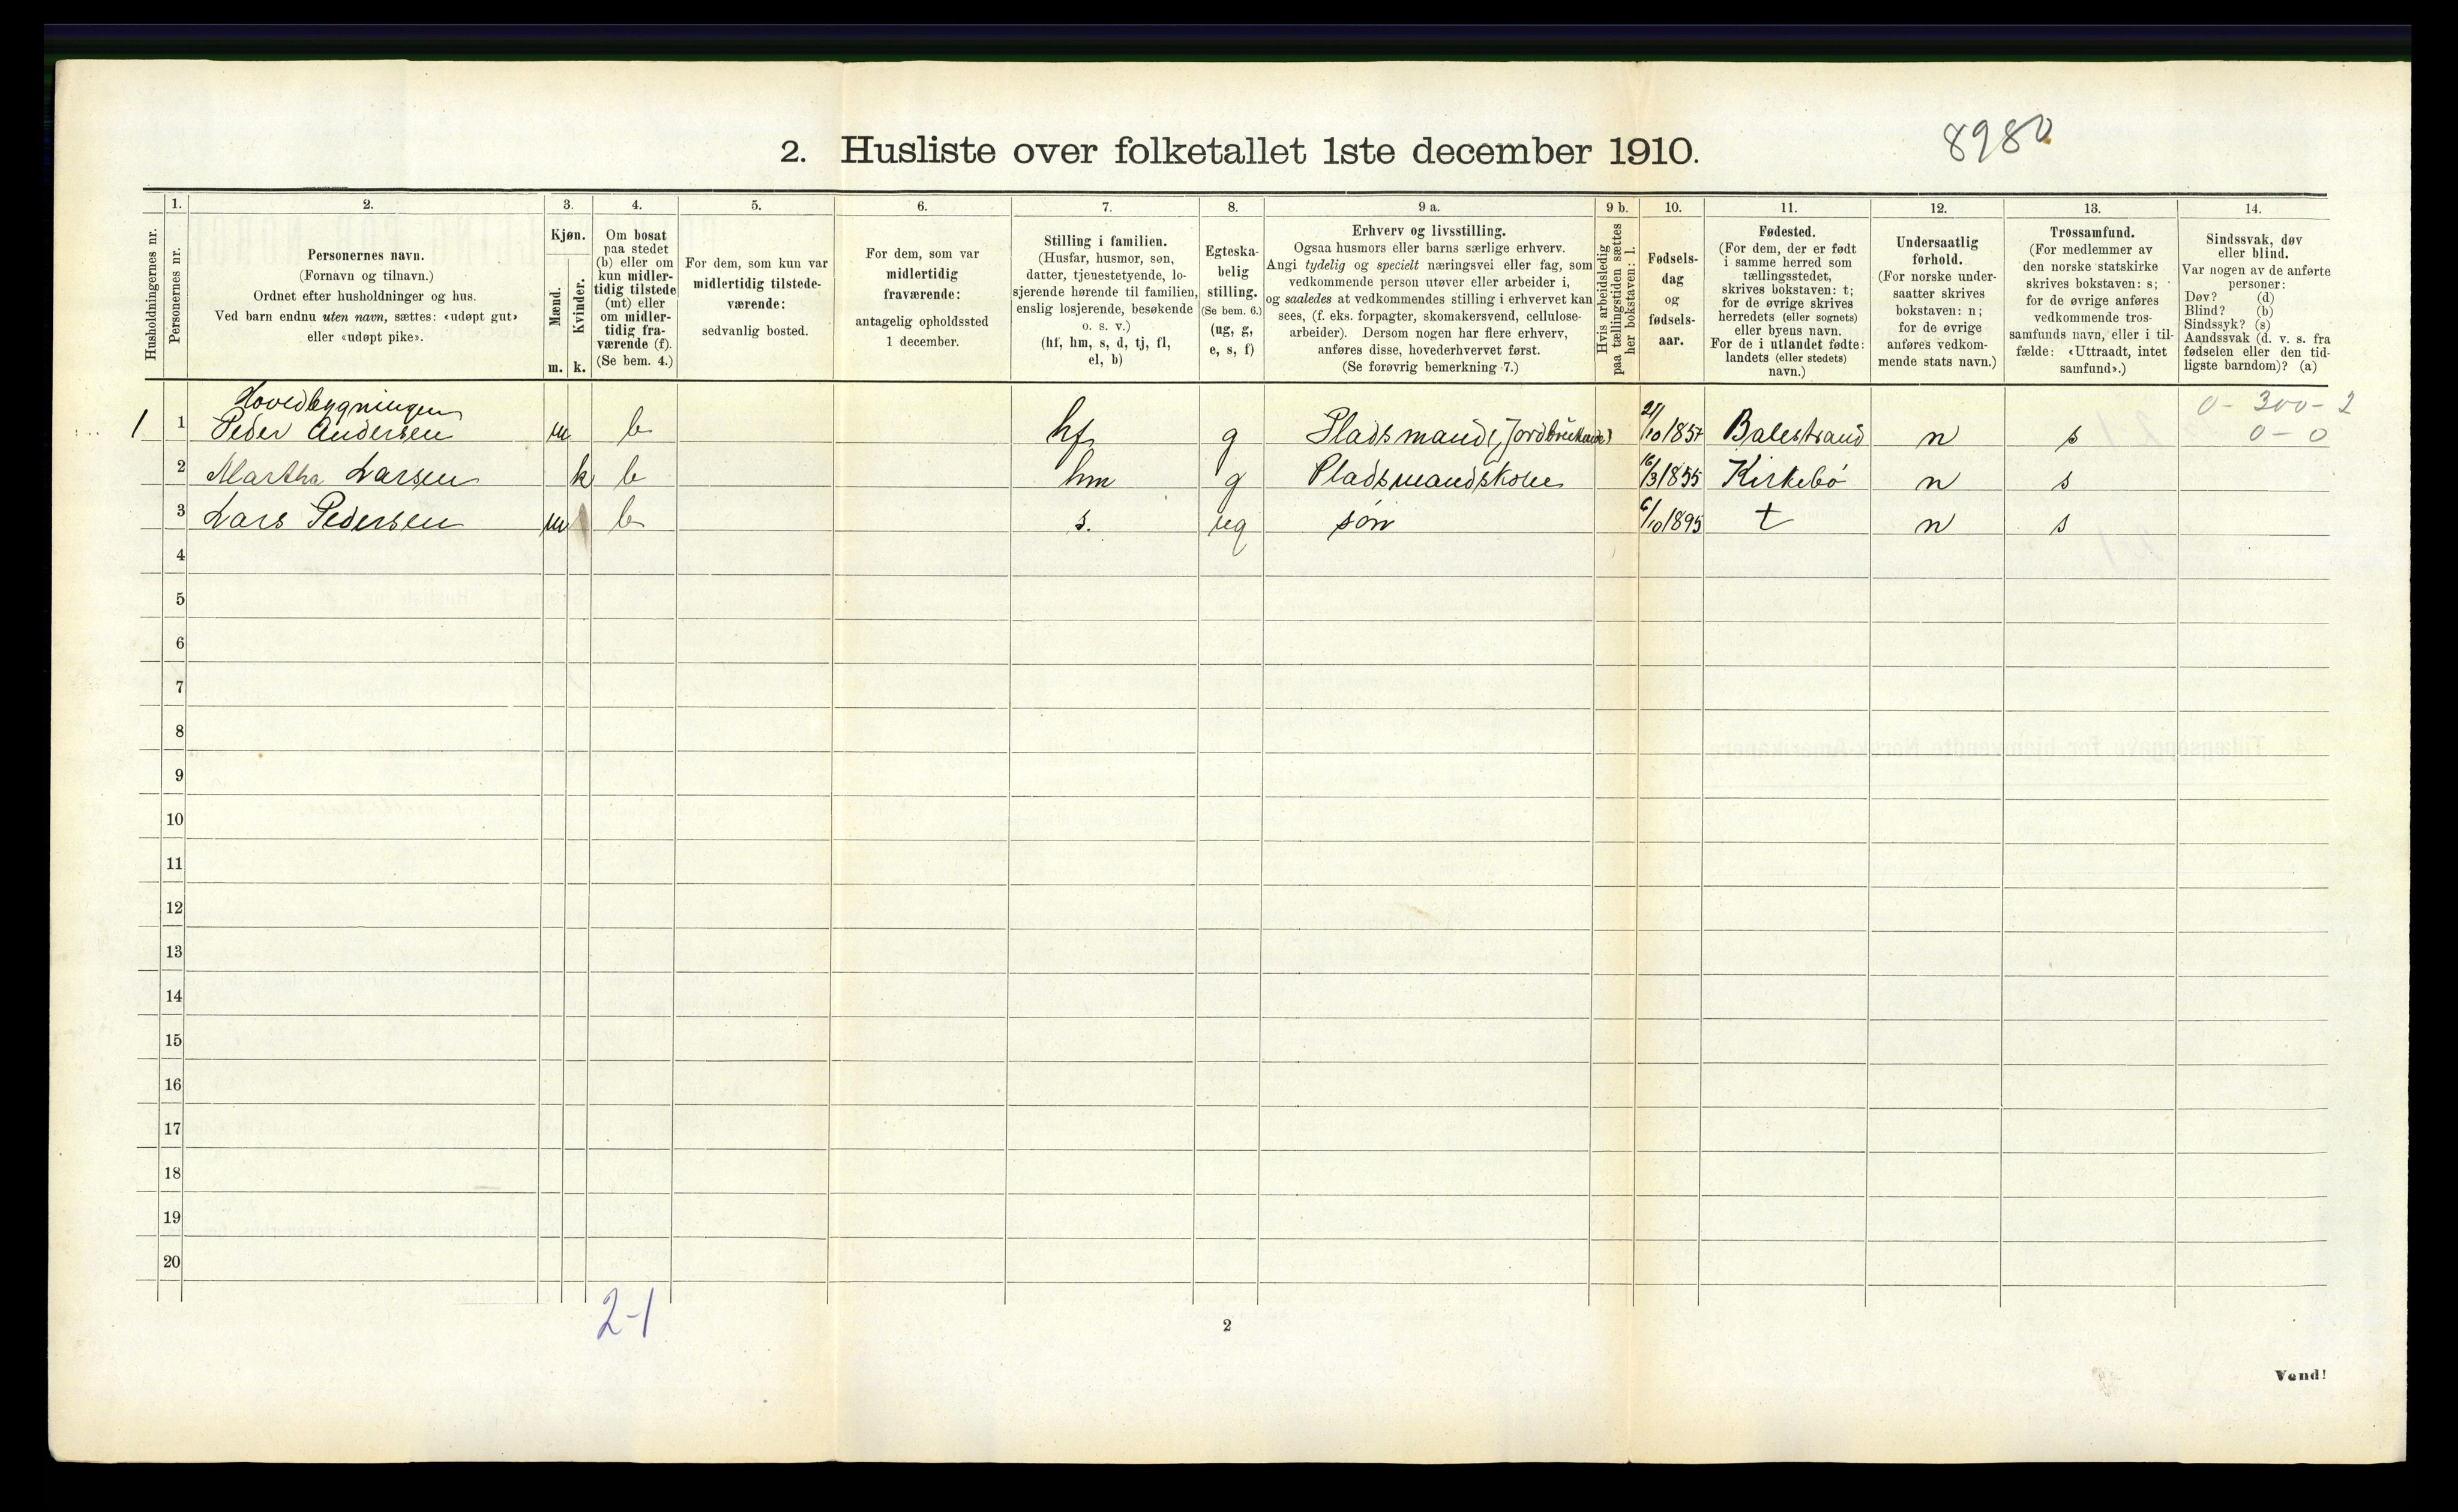 8980
2. Husliste over folketallet 1ste december 1910.
Husholdningernes nr.
1.
Personernes nr.
2.
Personernes navn.
(Fornavn og tilnavn.)
Ordnet efter husholdninger og hus.
Ved barn endnu uten navn, sættes: «udøpt gut»
eller «udøpt pike».
3.
Kjøn.
Mænd.
Kvinder.
m. k.
4.
Om bosat
paa stedet
(b) eller om
kun midler-
tidig tilstede
(mt) eller
om midler-
tidig fra-
værende (f).
(Se bem. 4.)
5.
For dem, som kun var
midlertidig tilstede-
værende:
sedvanlig bosted.
6.
For dem, som var
midlertidig
fraværende:
antagelig opholdssted
1 december.
7.
Stilling i familien.
(Husfar, husmor, søn,
datter, tjenestetyende, lo-
sjerende hørende til familien,
enslig losjerende, besøkende
o. s. v.)
(hf, hm, s, d, tj, fl,
el, b)
8.
Egteska-
belig
stilling.
(Se bem. 6.)
(ug, g,
e, s, f)
9 a.
Erhverv og livsstilling.
Ogsaa husmors eller barns særlige erhverv.
Angi tydelig og specielt næringsvei eller fag, som
vedkommende person utøver eller arbeider i,
og saaledes at vedkommendes stilling i erhvervet kan
sees, (f. eks. forpagter, skomakersvend, cellulose-
arbeider). Dersom nogen har flere erhverv,
anføres disse, hovederhvervet først.
(Se forøvrig bemerkning 7.)
9 b.
Hvis arbeidsledig
paa tællingstiden sættes
her bokstaven: l.
10.
Fødsels-
dag
og
fødsels-
aar.
11.
Fødested.
(For dem, der er født
i samme herred som
tællingsstedet,
skrives bokstaven: t;
for de øvrige skrives
herredets (eller sognets)
eller byens navn.
For de i utlandet fødte:
landets (eller stedets)
navn.)
12.
Undersaatlig
forhold.
(For norske under-
saatter skrives
bokstaven: n;
for de øvrige
anføres vedkom-
mende stats navn.)
13.
Trossamfund.
(For medlemmer av
den norske statskirke
skrives bokstaven: s;
for de øvrige anføres
vedkommende tros-
samfunds navn, eller i til-
fælde: «Uttraadt, intet
samfund».)
14.
Sindssvak, døv
eller blind.
Var nogen av de anførte
personer:
Døv? (d)
Blind? (b)
Sindssyk? (s)
Aandssvak (d. v. s. fra
fødselen eller den tid-
ligste barndom)? (a)
Hovedbygningen
0 - 300 - 2
1 1 Peder Andersen m b hf g Pladsmand (Jordbrukande) 21/10 1857 Balestrand n s 0 - 0
2 Martha Larsen k b hm g Pladsmandskone 16/3 1855 Kirkebø n s
3 Lars Pedersen m b s. ug søn 6/10 1895 t n s
4
5
6
7
8
9
10
11
12
13
14
15
16
17
18
19
20
2-1
2
Vend!